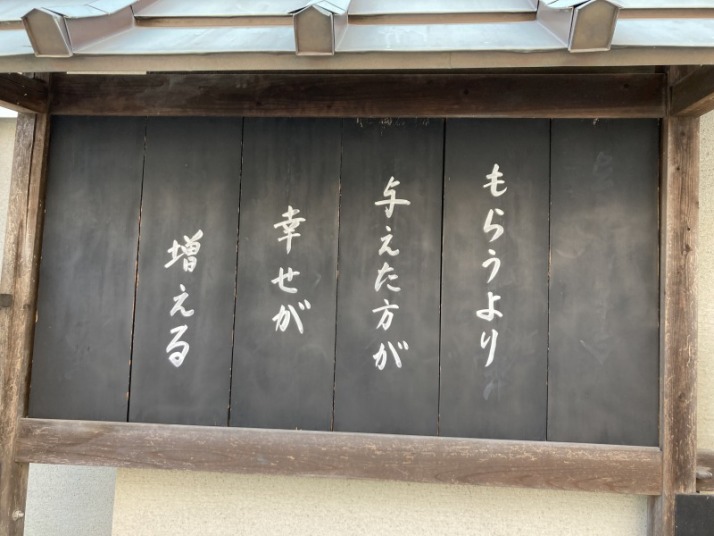 もらうより
与えた方が
幸せが
増える